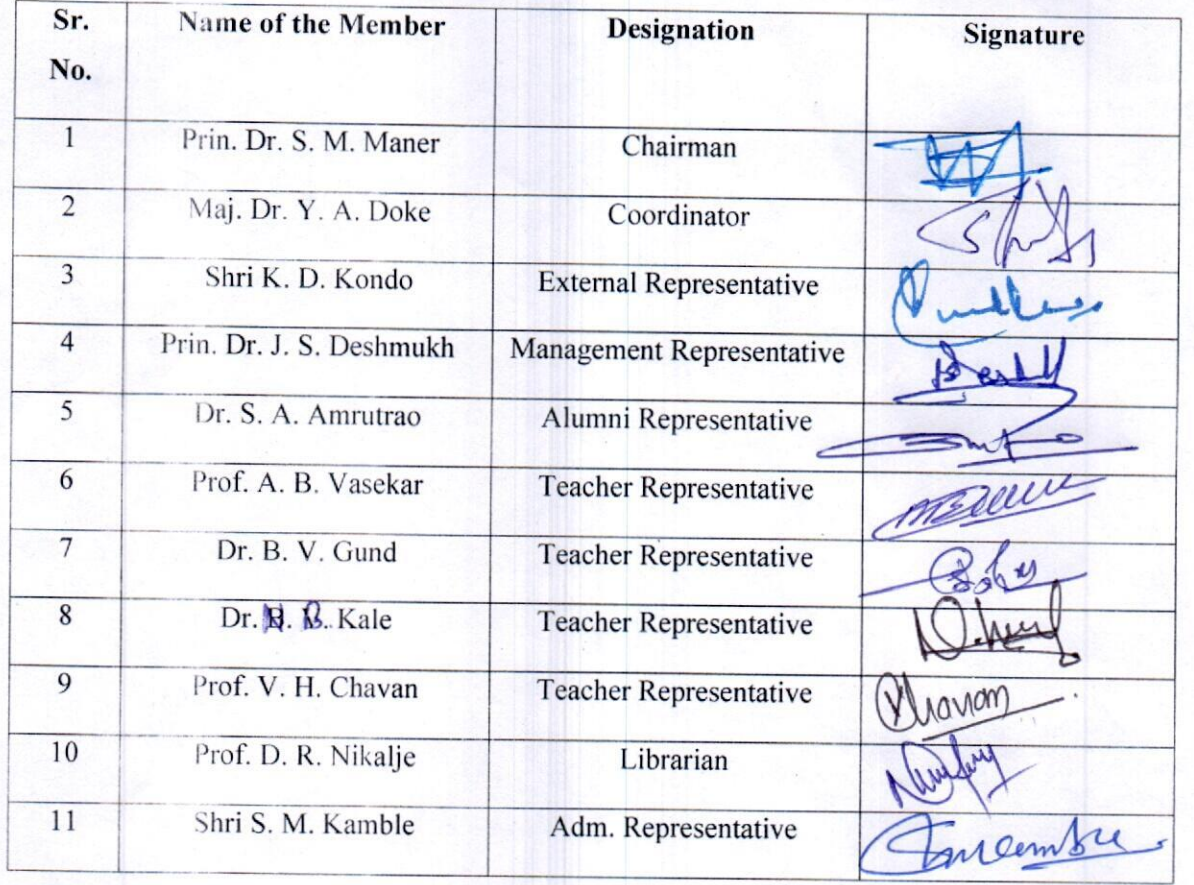 Sr. No. Name of the Member Designation Signature
1 Prin. Dr. S. M. Maner Chairman
2 Maj. Dr. Y. A. Doke Coordinator
3 Shri K. D. Kondo External Representative
4 Prin. Dr. J. S. Deshmukh Management Representative
5 Dr. S. A. Amrutrao Alumni Representative
6 Prof. A. B. Vasekar Teacher Representative
7 Dr. B. V. Gund Teacher Representative
8 Dr. N. B. Kale Teacher Representative
9 Prof. V. H. Chavan Teacher Representative Chavan
10 Prof. D. R. Nikalje Librarian
11 Shri S. M. Kamble Adm. Representative